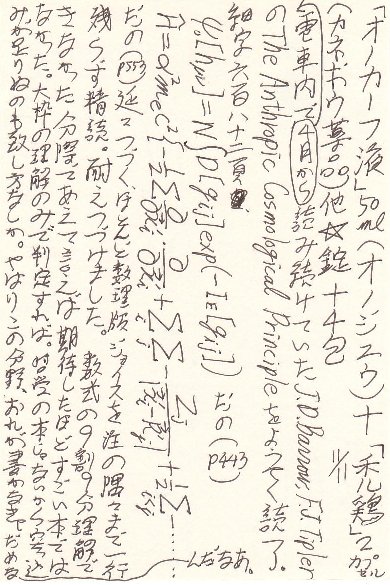 「オーカーフ液」50ml(オノジュウ)十「禿鶏」2カプセル
(カネボウ薬品)他 錠 十4包 11/11
電車内で4月から読み続けてきたJ.D.Barrow. F.J. Tipler
の The Anthropic Cosmological Principle をようやく読了。
細字六百八十二頁。
Ψ₀[hᵢⱼ] = N∫D[gᵢⱼ]exp(-I_E[gᵢⱼ]) だの(p443
Ĥ=α²mec²{-½Σ ∂/∂x̄ᵢ·∂/∂x̄ᵢ + ΣΣ Zⱼ/|x̄ᵢ-R̄ⱼ| + ½Σ…
だの(p553)延々つづくほとんど数理版ジョイスを注の隅々まで一行
残らず精読。耐えつづけました。 数式の9割9分理解で
きなかった分際であえて言えば期待したほどすごい本では
なかった。大枠の理解のみで判定すれば。哲学の本じゃないから突込
みが足りぬのも致し方なしか。やはりこの分野、おれが書かなきゃだめな
んだなあ。